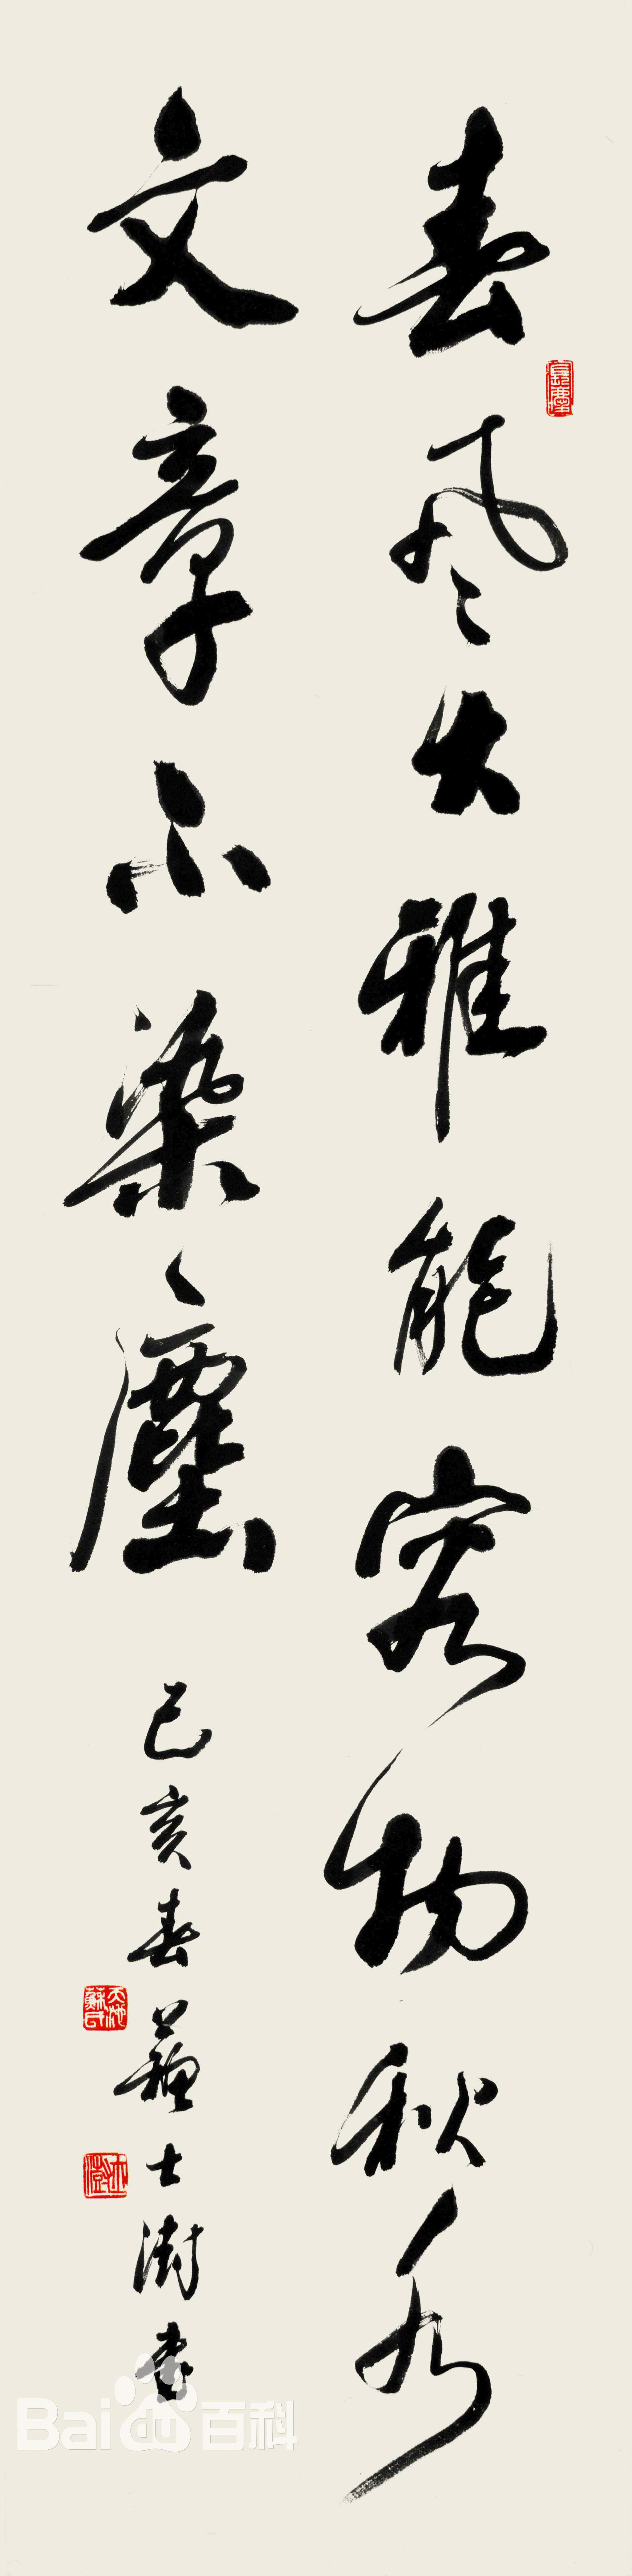 春风大雅能容物秋水
文章不染塵
己亥春蘇士澍書
Bai百科